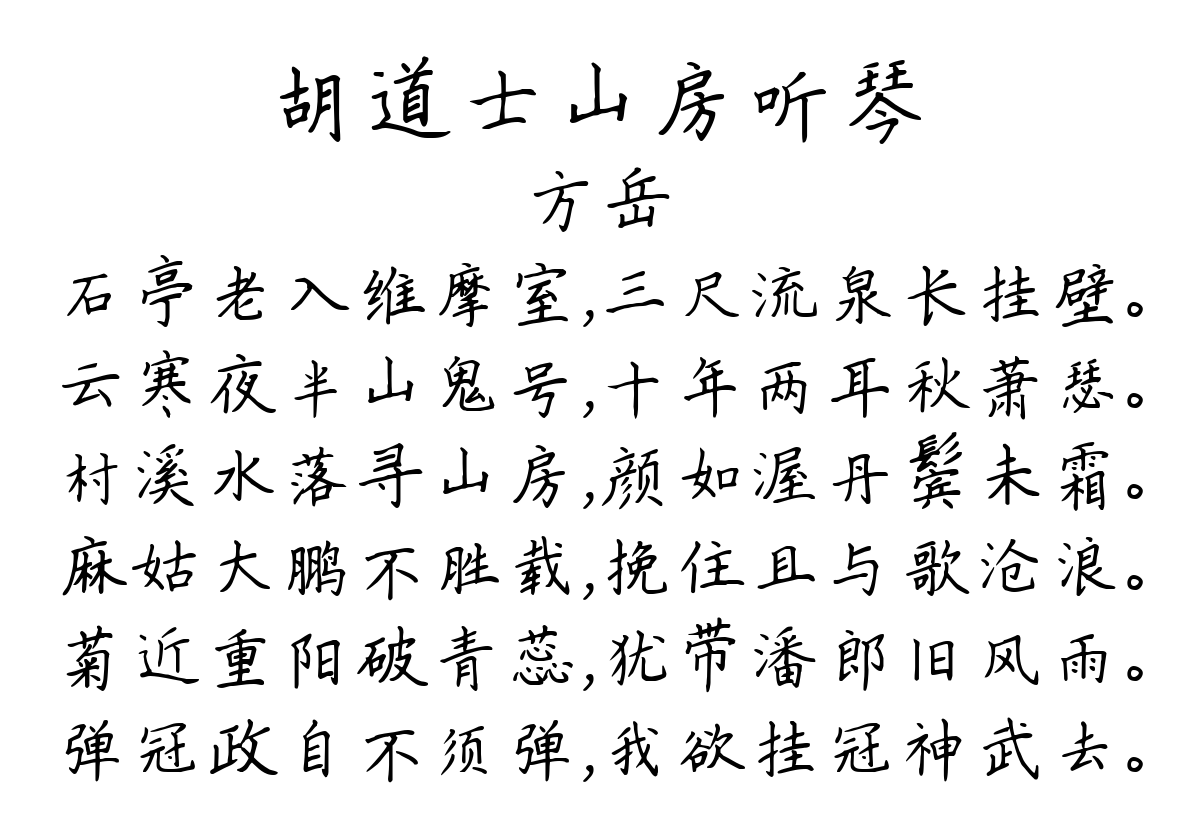 胡道士山房听琴
方岳
石亭老入维摩室,三尺流泉长挂壁。
云寒夜半山鬼号,十年两耳秋萧瑟。
村溪水落寻山房,颜如渥丹鬓未霜。
麻姑大鹏不胜载,挽住且与歌沧浪。
菊近重阳破青蕊,犹带潘郎旧风雨。
弹冠政自不须弹,我欲挂冠神武去。